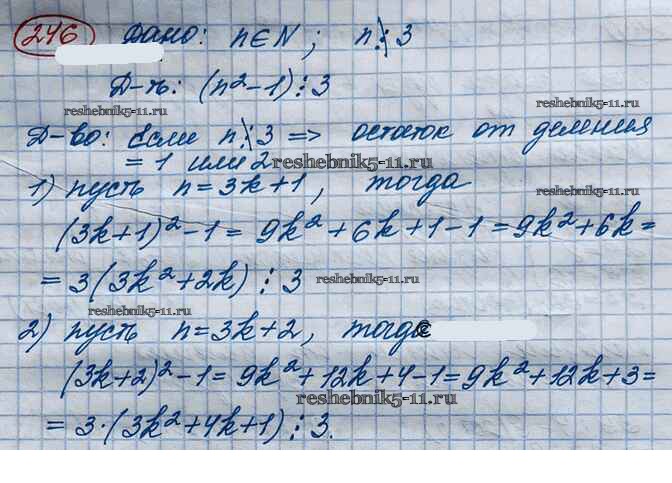 246 Дано: n∈N; n⋮̸3
Д-ть: (n²-1)⋮3
reshebnik5-11.ru reshebnik5-11.ru
Д-во: Если n⋮̸3 => остаток от деления
= 1 или 2 reshebnik5-11.ru
1) пусть n=3k+1, тогда reshebnik5-11.ru
(3k+1)²-1= 9k²+6k+1-1=9k²+6k=
= 3(3k²+2k)⋮3 reshebnik5-11.ru
reshebnik5-11.ru
2) пусть n=3k+2, тогда
(3k+2)²-1=9k²+12k+4-1=9k²+12k+3=
reshebnik5-11.ru
= 3·(3k²+4k+1)⋮3.